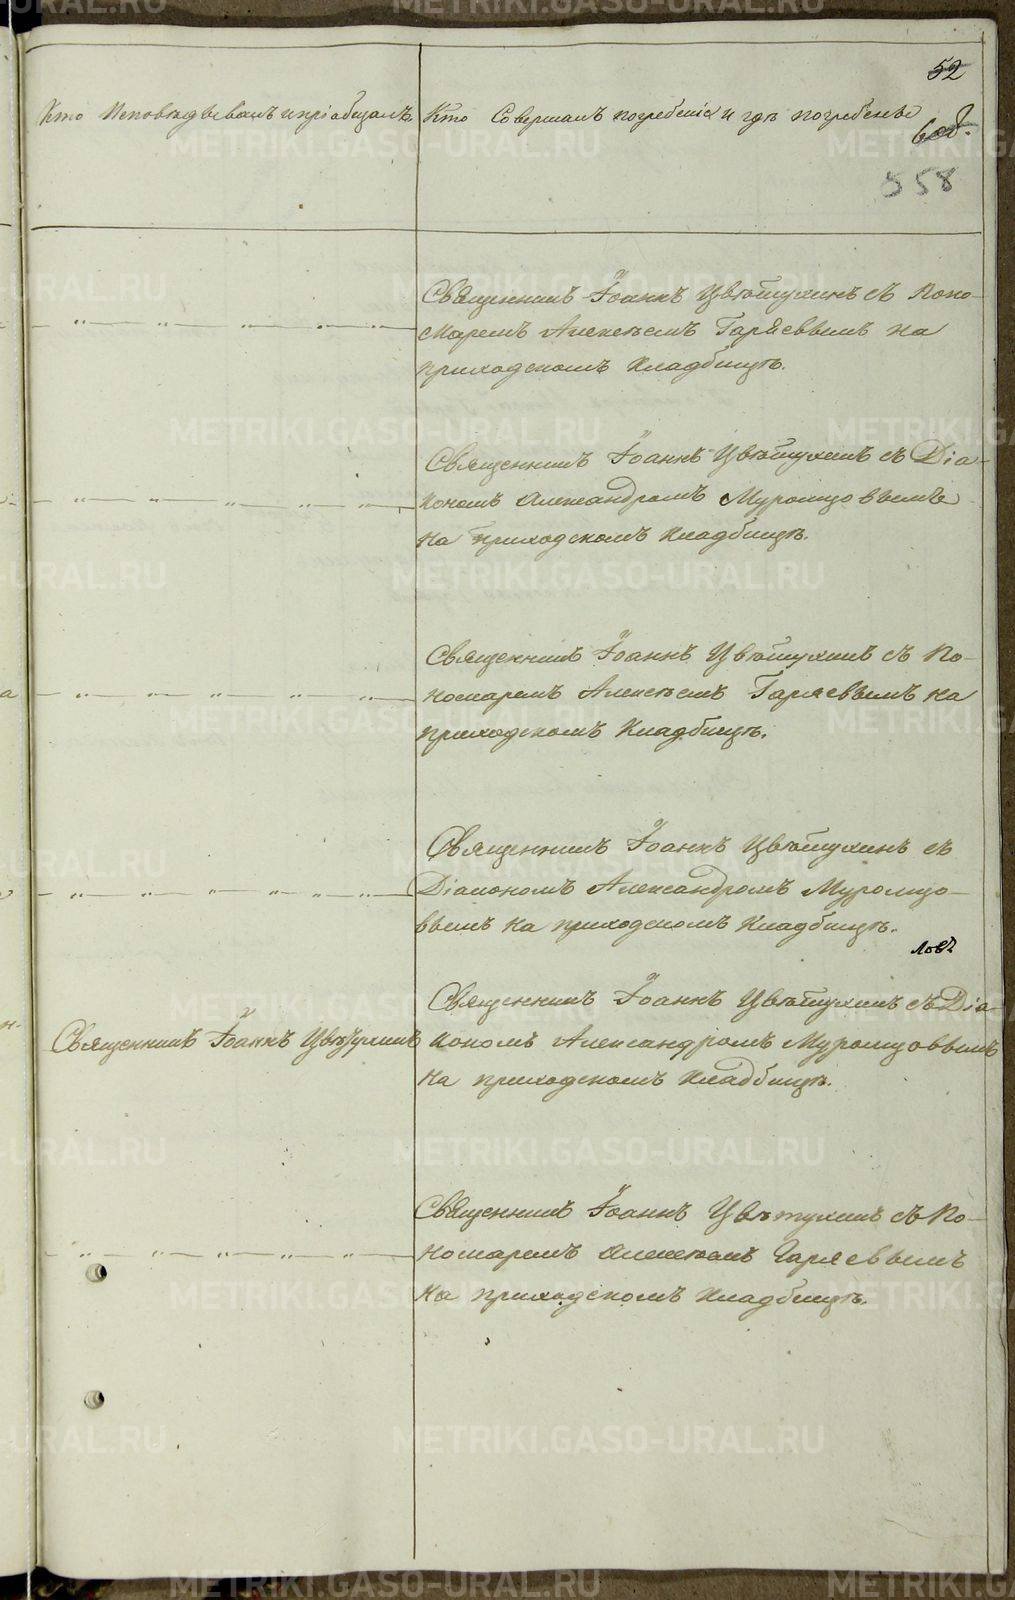 52
Кто Исповѣдывалъ и пріобщалъ
Кто Совершалъ погребеніе и гдѣ погребены
558
Священникъ Іоаннъ Цвѣтухинъ съ Поно-
маремъ Алексѣемъ Гаряевымъ на
приходскомъ Кладбищѣ.
Священникъ Іоаннъ Цвѣтухинъ съ Діа-
кономъ Александромъ Муромцовымъ
на приходскомъ Кладбищѣ.
Священникъ Іоаннъ Цвѣтухинъ съ По-
номаремъ Алексѣемъ Гаряевымъ на
приходскомъ Кладбищѣ.
Священникъ Іоаннъ Цвѣтухинъ съ
Діакономъ Александромъ Муромцо-
вымъ на приходскомъ Кладбищѣ.
Священникъ Іоаннъ Цвѣтухинъ
Священникъ Іоаннъ Цвѣтухинъ съ Діа-
кономъ Александромъ Муромцовымъ
на приходскомъ Кладбищѣ.
Священникъ Іоаннъ Цвѣтухинъ съ По-
номаремъ Алексѣемъ Гаряевымъ
на приходскомъ Кладбищѣ.
METRIKI.GASO-URAL.RU